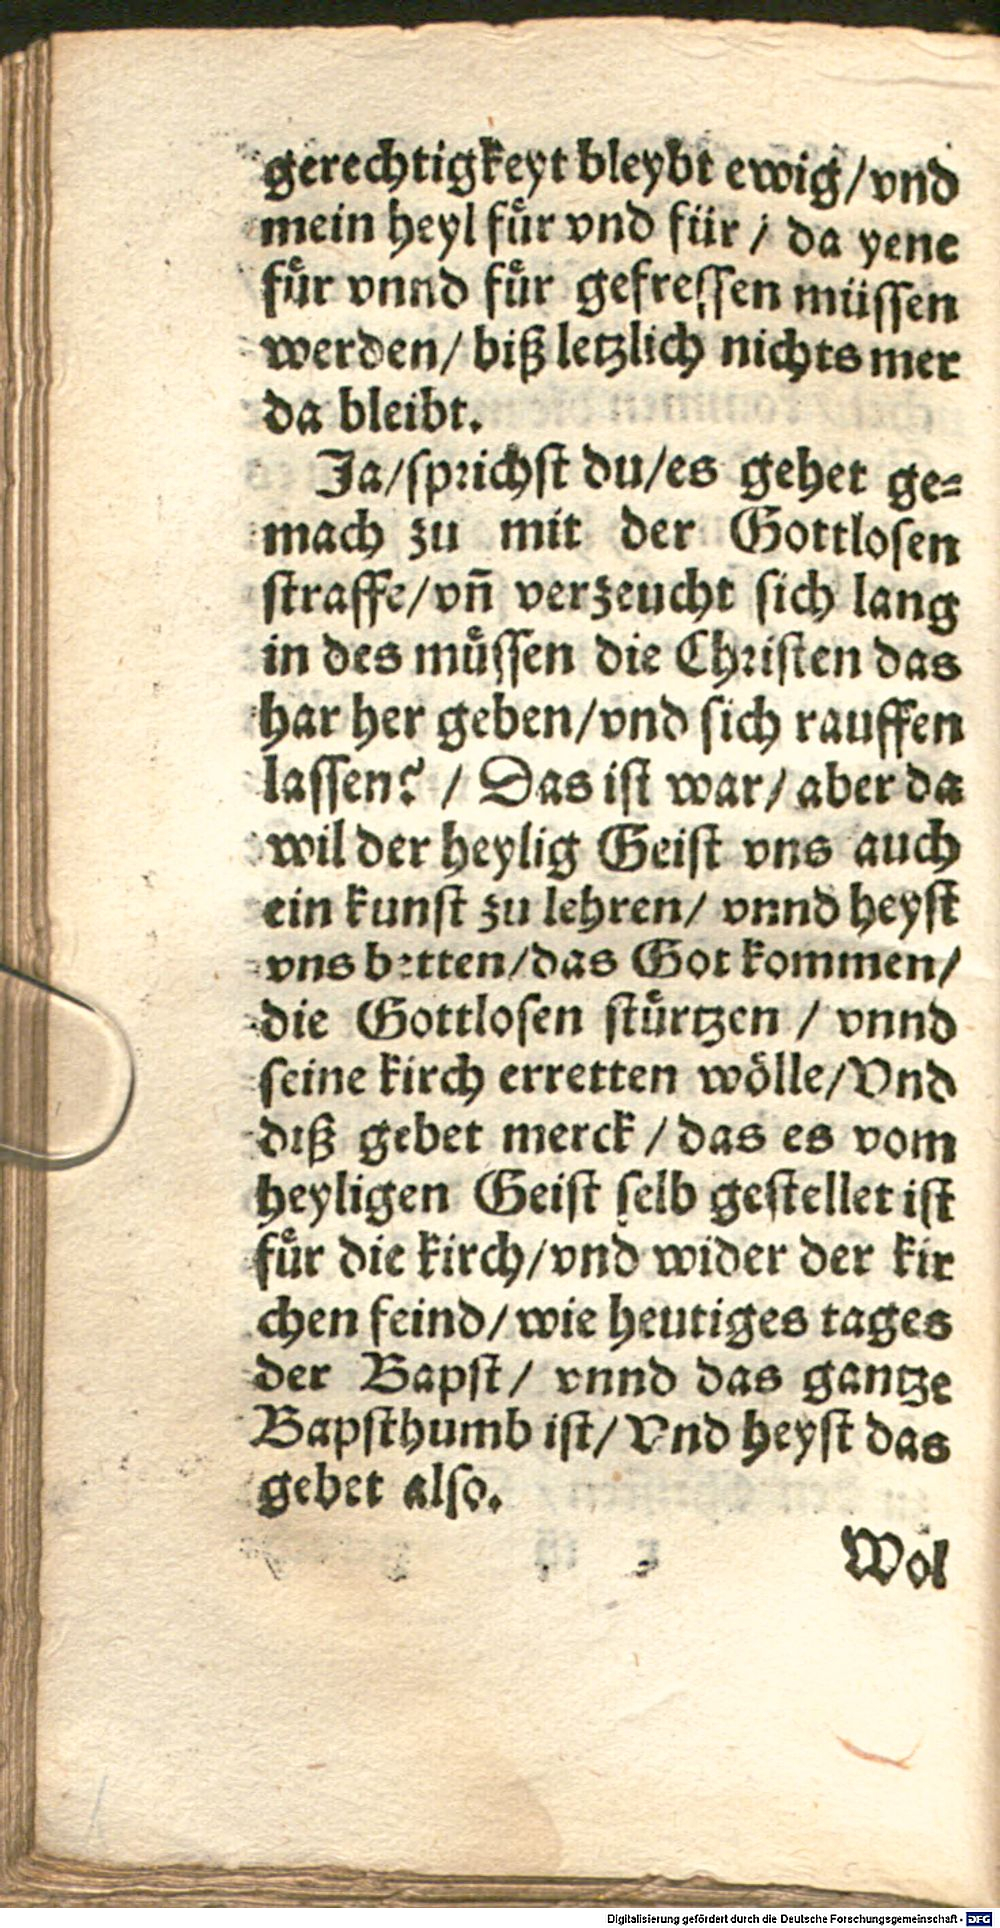 gerechtigkeyt bleybt ewig/vnd
mein heyl fuͤr vnd für / da yene
fuͤr vnnd fuͤr gefressen müssen
werden/ biß letzlich nichts mer
da bleibt.
Ja/sprichst du/es gehet ge-
mach zu mit der Gottlosen
straffe/vn̄ verzeucht sich lang
in des muͤssen die Christen das
har her geben/vnd sich rauffen
lassen? / Das ist war/ aber da
wil der heylig Geist vns auch
ein kunst zu lehren/ vnnd heyst
vns betten/das Got kommen/
die Gottlosen stuͤrtzen / vnnd
seine kirch erretten woͤlle/Vnd
diß gebet merck / das es vom
heyligen Geist selb gestellet ist
fuͤr die kirch/vnd wider der kir
chen feind/wie heutiges tages
der Bapst/ vnnd das gantze
Bapsthumb ist/Vnd heyst das
gebet also.
Wol
Digitalisierung gefördert durch die Deutsche Forschungsgemeinschaft - DFG